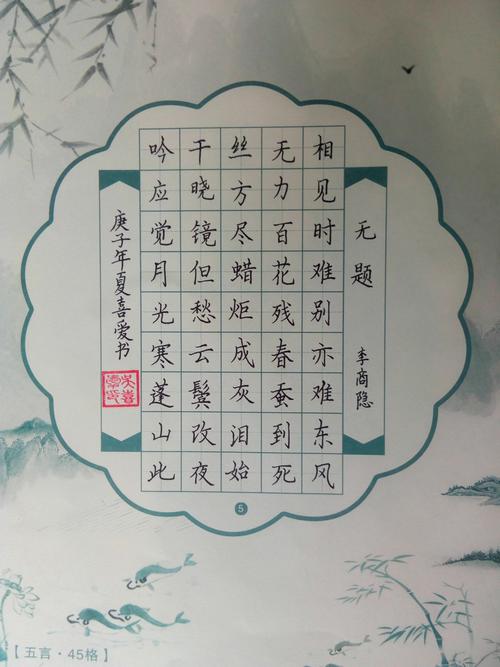 无题
李商隐
相见时难别亦难东风
无力百花残春蚕到死
丝方尽蜡炬成灰泪始
干晓镜但愁云鬓改夜
吟应觉月光寒蓬山此
庚子年夏喜爱书
5
【五言·45格】